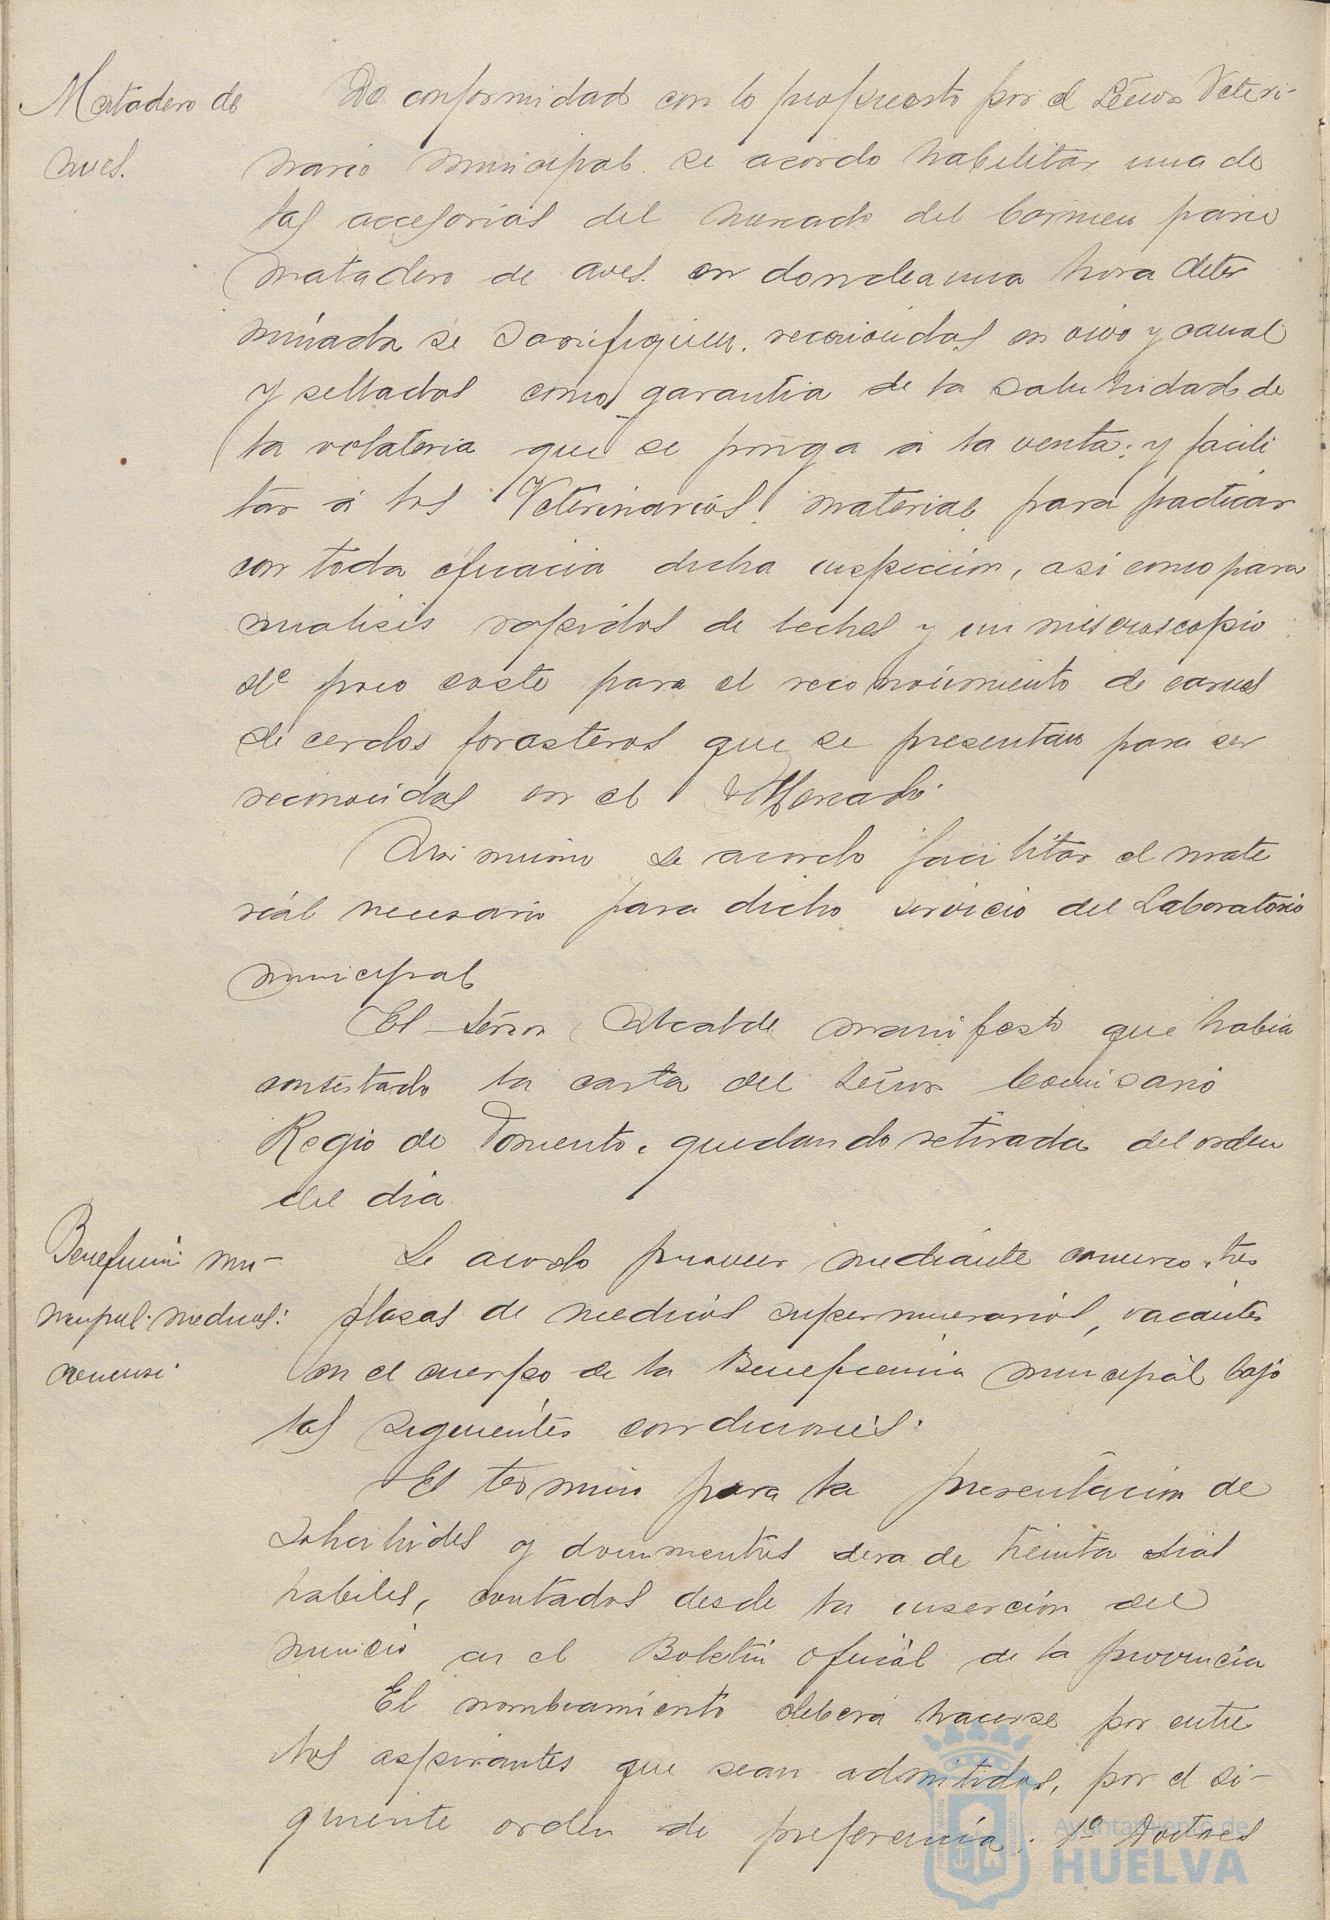 Matadero de
aves.
De conformidad con lo propuesto por el Señor Veteri-
nario municipal se acordo habilitar una de
las accesorias del mercado del Carmen para
matadero de aves. en donde a una hora deter
minada se sacrifiquen. reconocidas en vivo y canal
y selladas como garantia de la salubridad de
la volateria que se ponga á la venta; y facili
tar á los Veterinarios material para practicar
con toda eficacia dicha inspeccion, asi como para
analisis rapidos de leches y un miscroscopio
de poco coste para el reconocimiento de carnes
de cerdos forasteros que se presentan para ser
reconocidas en el Mercado.
Asi mismo se acordo facilitar el mate
rial necesario para dicho servicio del Laboratorio
municipal
El Señor Alcalde manifesto que habia
contestado la carta del Señor Comisario
Regio de Fomento, quedando retirada del orden
del dia
Beneficencia mu-
nicipal. medicos:
Se acordo proveer mediante concurso tres
plazas de medicos supernumerarios, vacantes
en el cuerpo de la Beneficencia municipal bajo
las siguientes condiciones.
El termino para la presentacion de
solicitudes y documentos sera de treinta dias
habiles, contados desde la insercion del
anuncio en el Boletin oficial de la provincia
El nombramiento deberá hacerse por entre
los aspirantes que sean admitidos, por el si-
guiente orden de preferencia. 1º Doctores
Ayuntamiento de
HUELVA